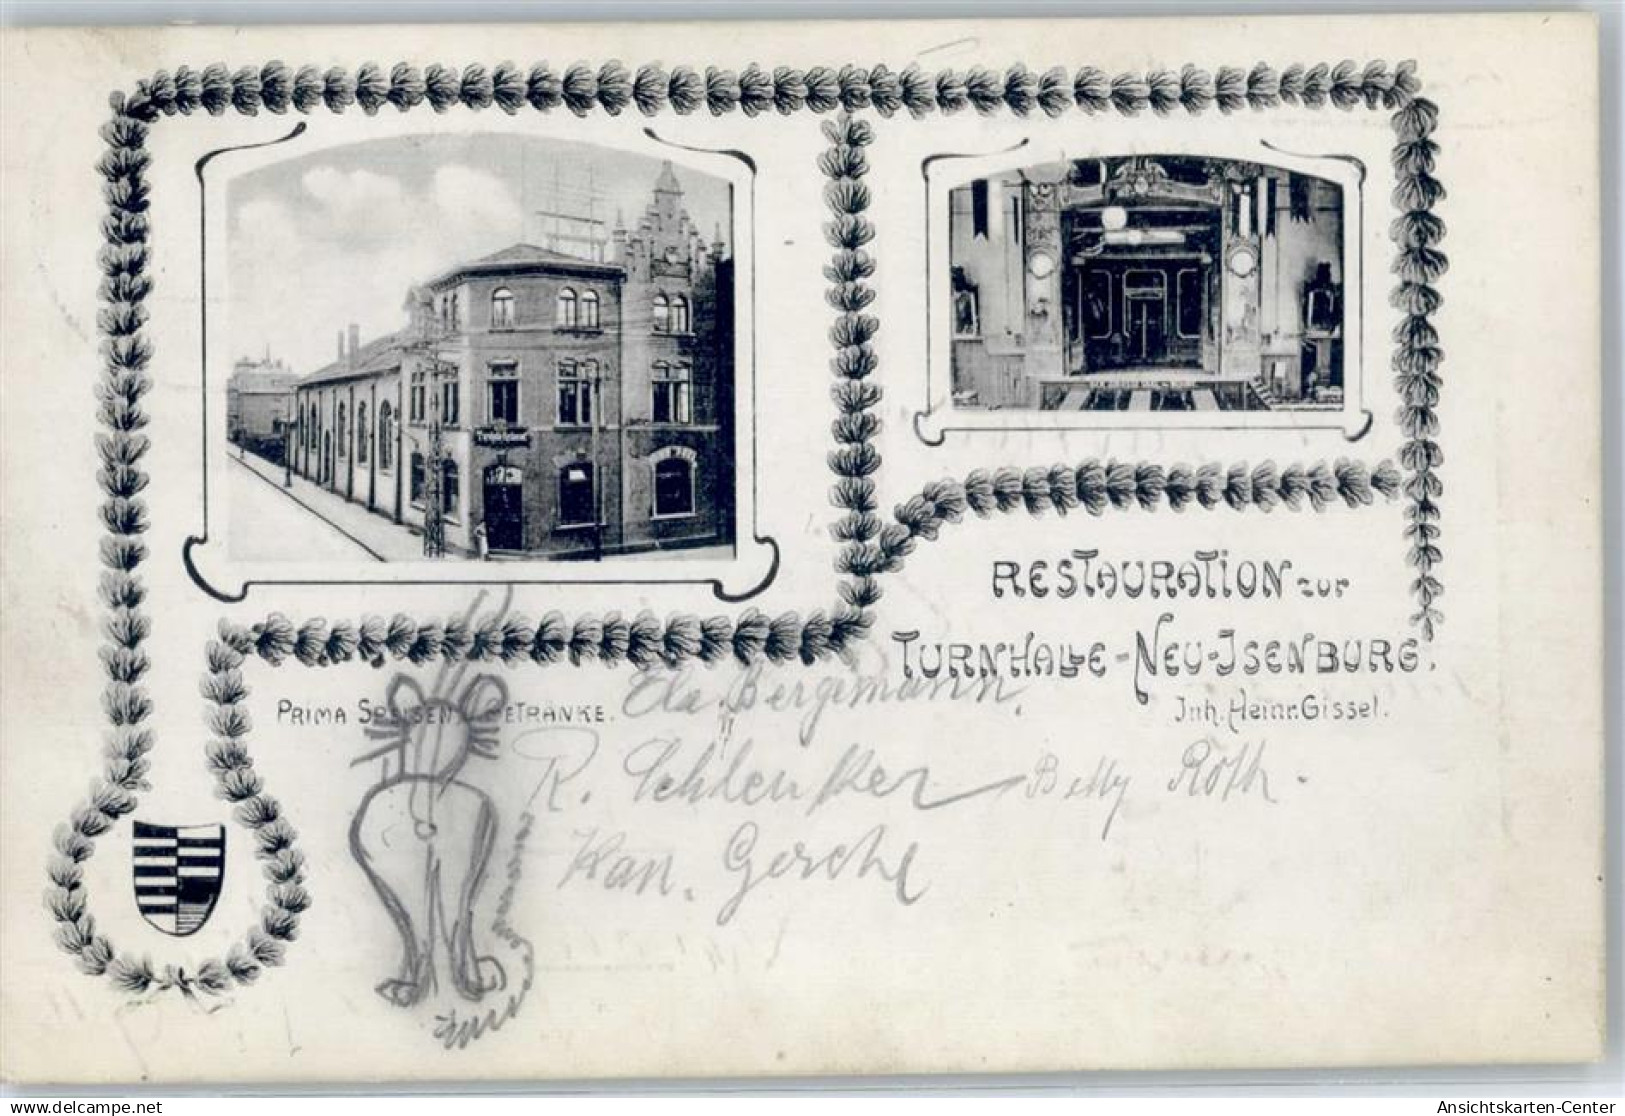 RESTAURATION zur
TURNHALLE-NEU-ISENBURG.
Inh. Heinr. Gissel.
PRIMA SPEISEN U. GETRÄNKE.
Ela Bergmann.
R. Schlenker Betty Roth.
Gerche
www.delcampe.net
Ansichtskarten-Center